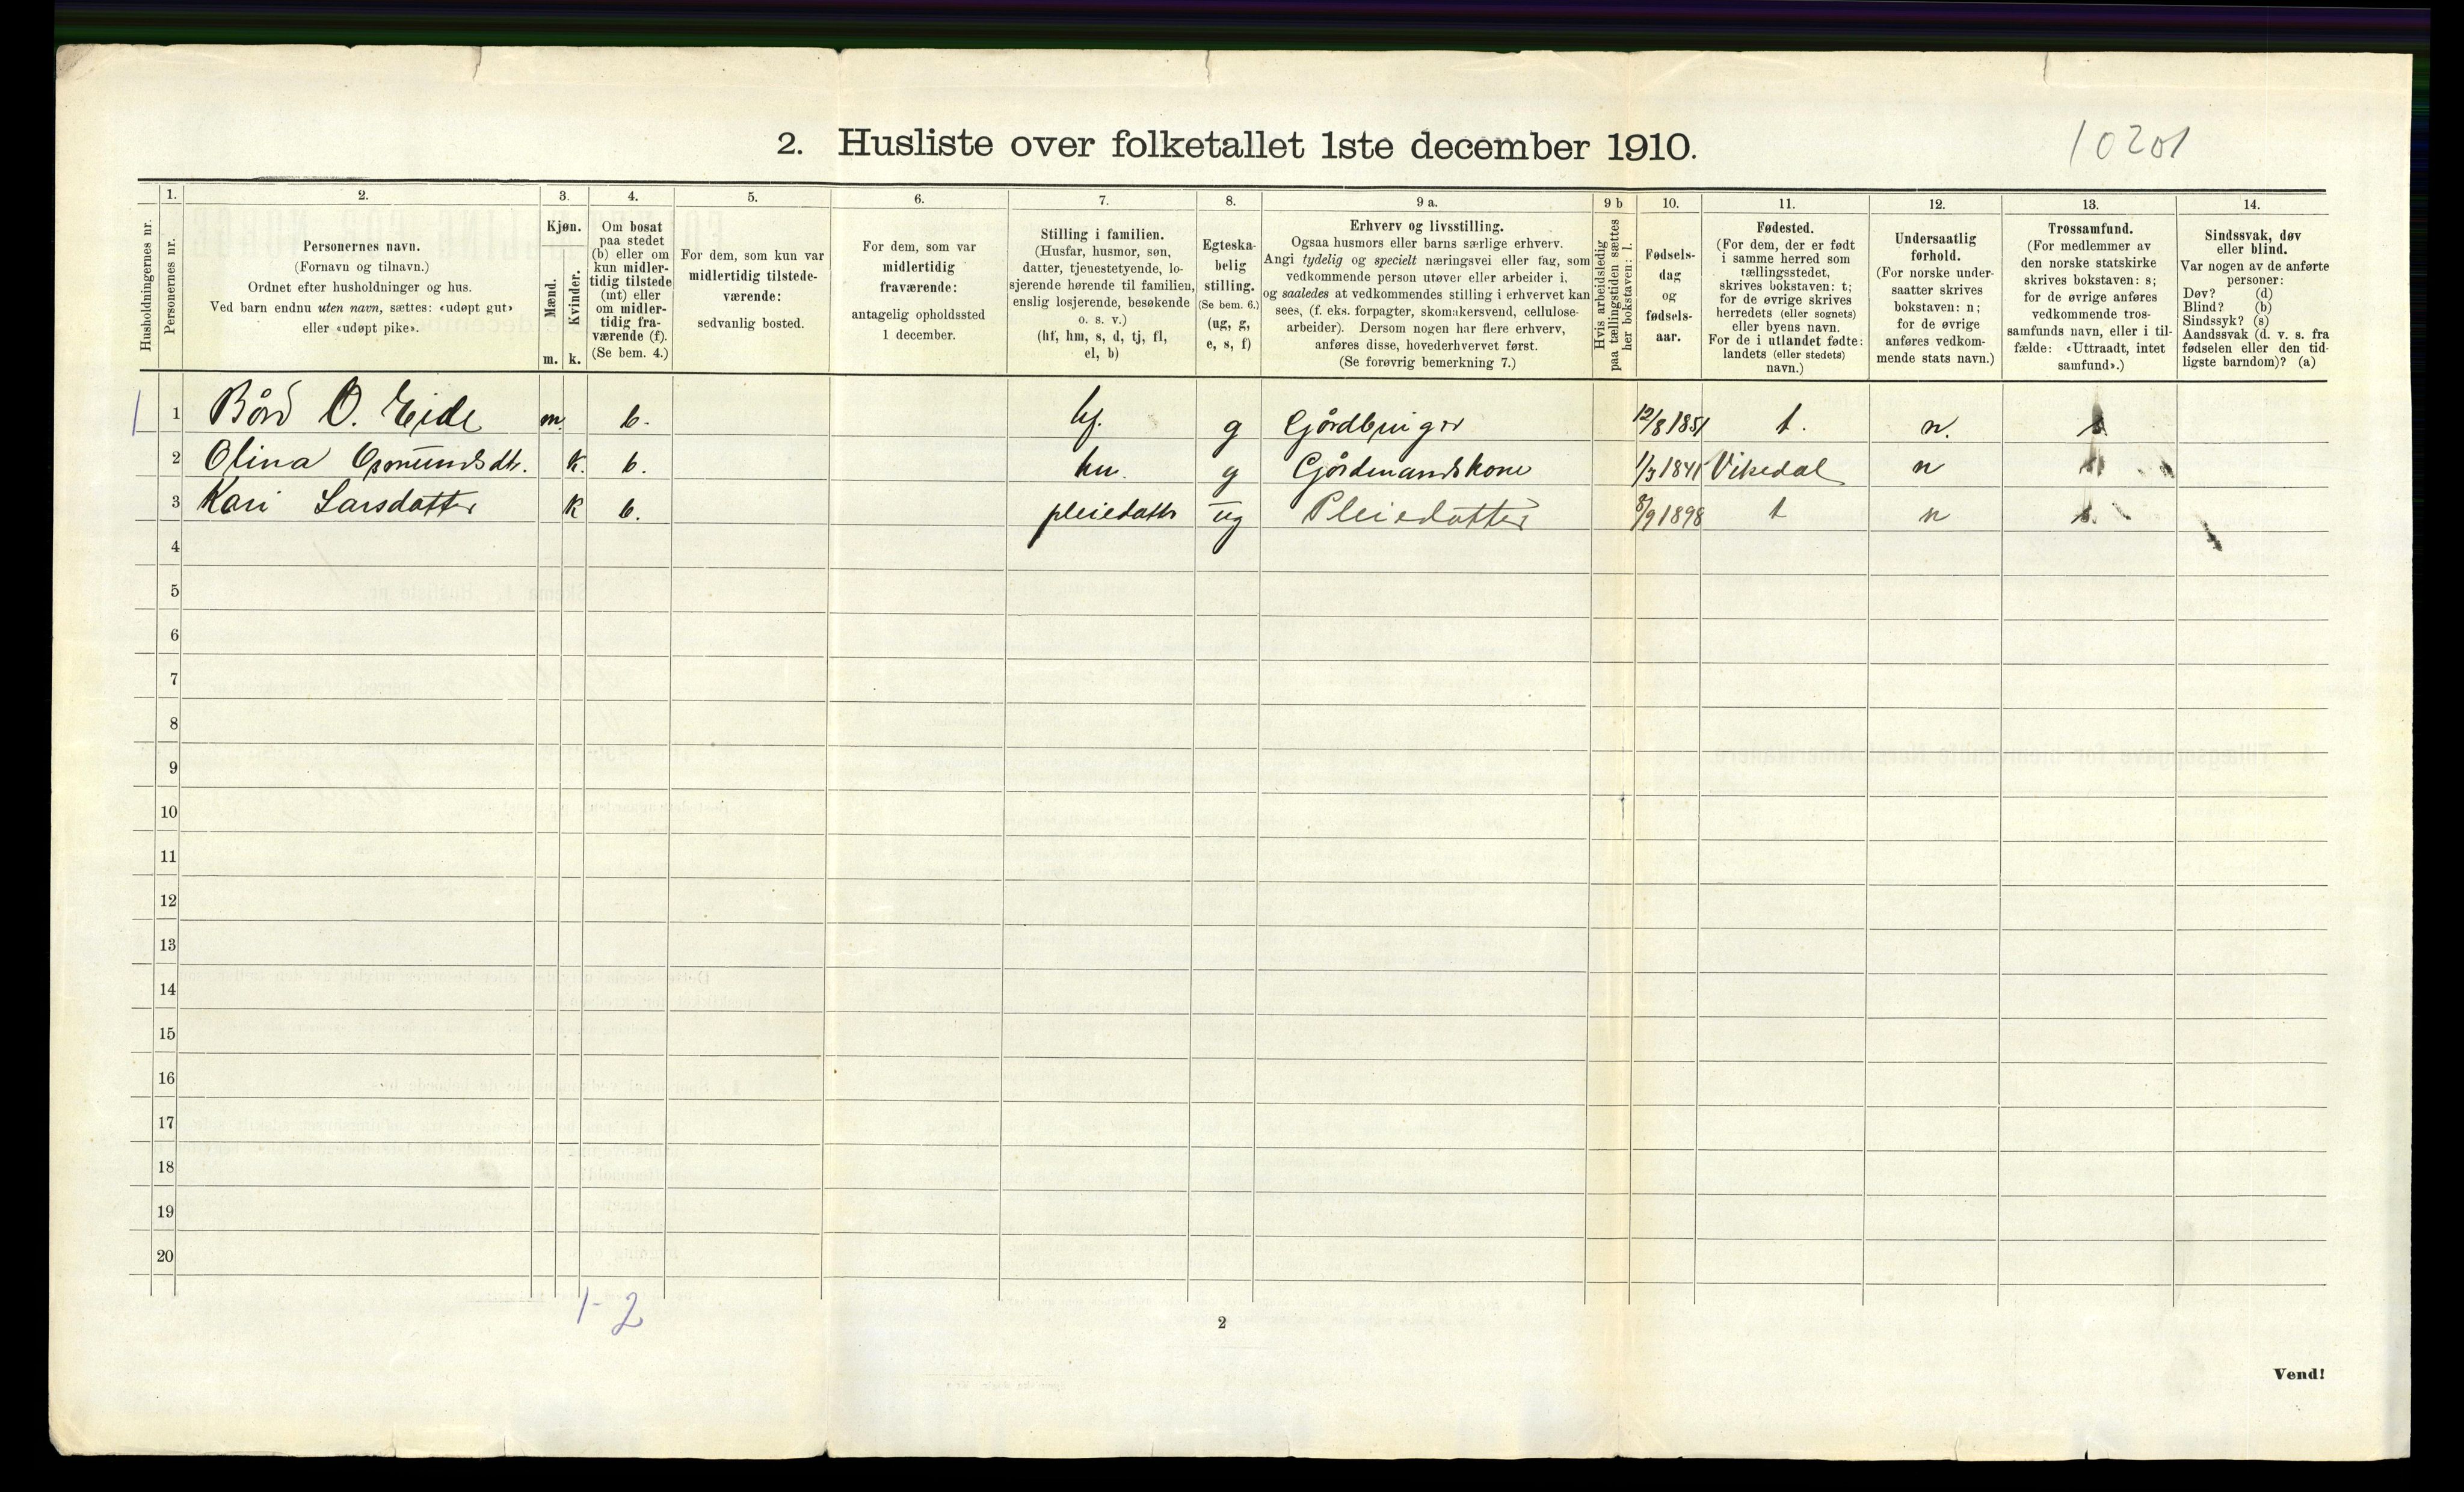 2. Husliste over folketallet 1ste december 1910.
10201
Husholdningernes nr.
1.
Personernes nr.
2.
Personernes navn.
(Fornavn og tilnavn.)
Ordnet efter husholdninger og hus.
Ved barn endnu uten navn, sættes: «udøpt gut»
eller «udøpt pike».
3.
Kjøn.
Mænd.
Kvinder.
m. k.
4.
Om bosat
paa stedet
(b) eller om
kun midler-
tidig tilstede
(mt) eller
om midler-
tidig fra-
værende (f).
(Se bem. 4.)
5.
For dem, som kun var
midlertidig tilstede-
værende:
sedvanlig bosted.
6.
For dem, som var
midlertidig
fraværende:
antagelig opholdssted
1 december.
7.
Stilling i familien.
(Husfar, husmor, søn,
datter, tjenestetyende, lo-
sjerende hørende til familien,
enslig losjerende, besøkende
o. s. v.)
(hf, hm, s, d, tj, fl,
el, b)
8.
Egteska-
belig
stilling.
(Se bem. 6.)
(ug, g,
e, s, f)
9 a.
Erhverv og livsstilling.
Ogsaa husmors eller barns særlige erhverv.
Angi tydelig og specielt næringsvei eller fag, som
vedkommende person utøver eller arbeider i,
og saaledes at vedkommendes stilling i erhvervet kan
sees, (f. eks. forpagter, skomakersvend, cellulose-
arbeider). Dersom nogen har flere erhverv,
anføres disse, hovederhvervet først.
(Se forøvrig bemerkning 7.)
9 b
Hvis arbeidsledig
paa tællingstiden sættes
her bokstaven: l.
10.
Fødsels-
dag
og
fødsels-
aar.
11.
Fødested.
(For dem, der er født
i samme herred som
tællingsstedet,
skrives bokstaven: t;
for de øvrige skrives
herredets (eller sognets)
eller byens navn.
For de i utlandet fødte:
landets (eller stedets)
navn.)
12.
Undersaatlig
forhold.
(For norske under-
saatter skrives
bokstaven: n;
for de øvrige
anføres vedkom-
mende stats navn.)
13.
Trossamfund.
(For medlemmer av
den norske statskirke
skrives bokstaven: s;
for de øvrige anføres
vedkommende tros-
samfunds navn, eller i til-
fælde: «Uttraadt, intet
samfund».)
14.
Sindssvak, døv
eller blind.
Var nogen av de anførte
personer:
Døv? (d)
Blind? (b)
Sindssyk? (s)
Aandssvak (d. v. s. fra
fødselen eller den tid-
ligste barndom)? (a)
1 1 Bård O. Eide m. b. hf. g Gårdbruger 12/8 1851 t. n. s
2 Olina Osmundsdtr. k. b. hm. g Gårdmandskone 1/3 1841 Vikedal n s
3 Kari Larsdatter k b. pleiedatter ug Pleiedatter 8/9 1898 t n s.
4
5
6
7
8
9
10
11
12
13
14
15
16
17
18
19
20
1-2
2
Vend!